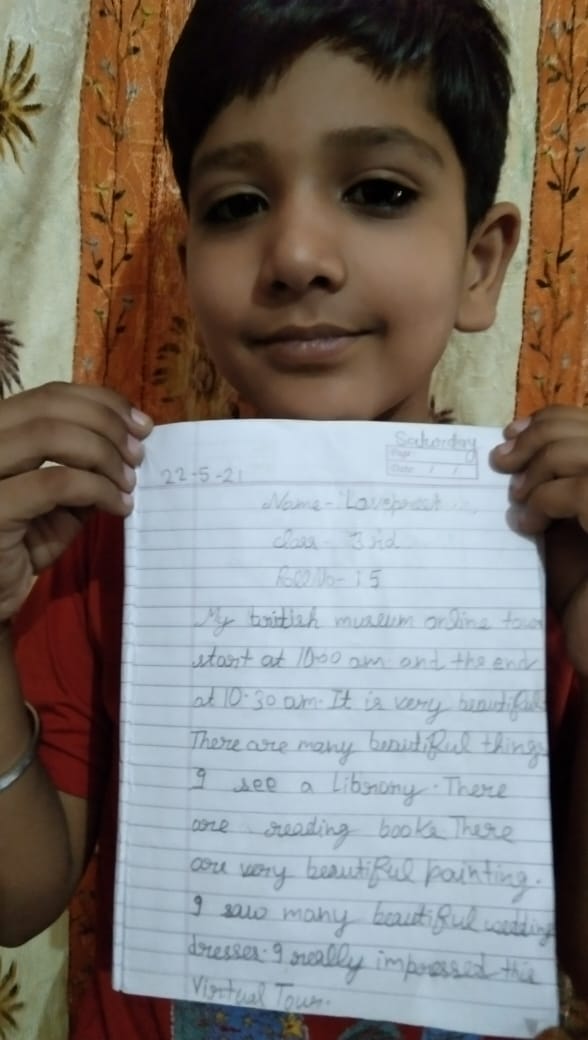 Saturday
Page
Date / /
22-5-21
Name- Lovepreet
Class- 3rd
Roll No- 15
My british museum online tour
start at 10:00 am and the end
at 10:30 am. It is very beautiful
There are many beautiful things
I see a Library. There
are reading books There
are very beautiful painting.
I saw many beautiful wedding
dresses. I really impressed this
Virtual Tour.